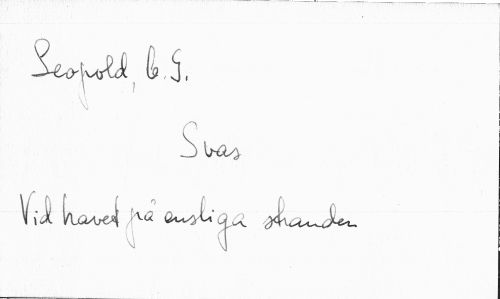 Leopold, C. G.
Svas
Vid havet på ensliga stranden